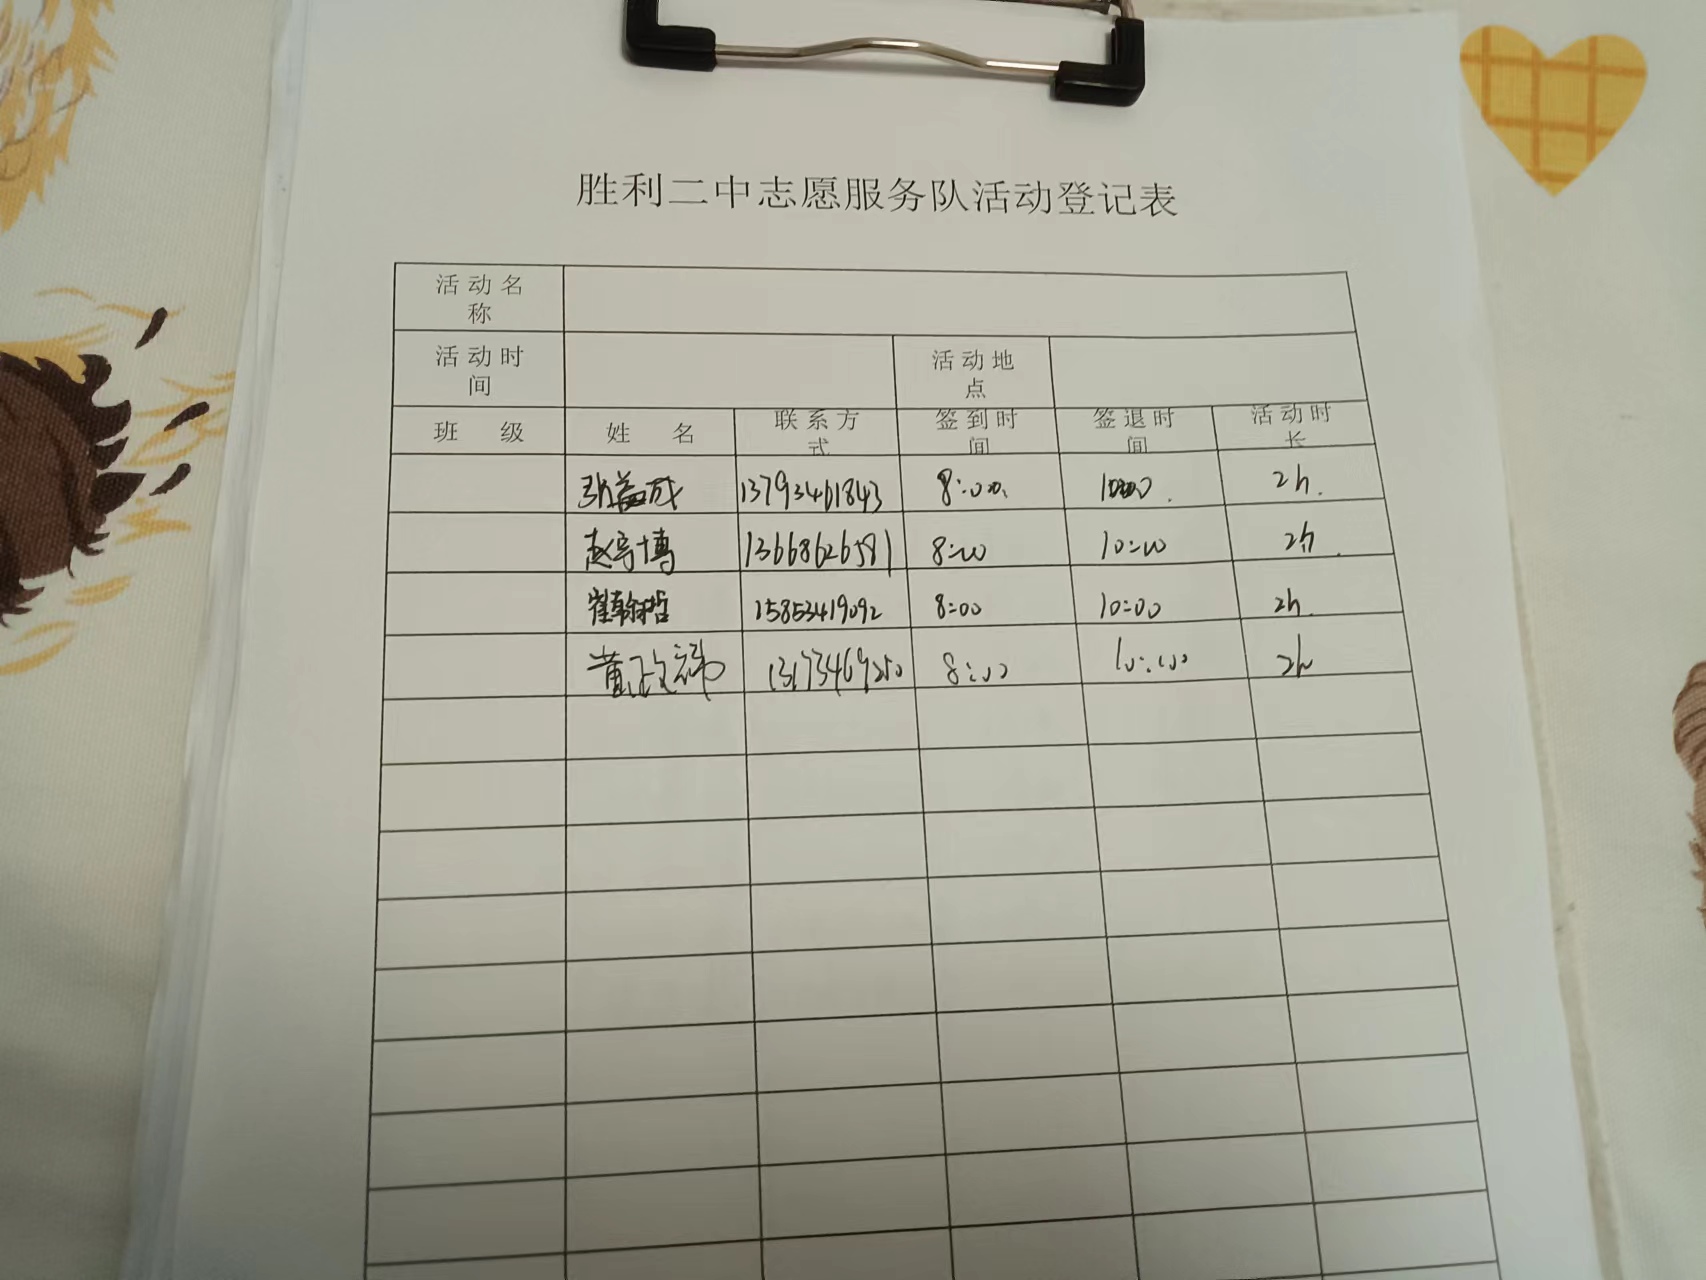 胜利二中志愿服务队活动登记表
活动名
称
活动时
间
活动地
点
班 级 姓 名 联系方式 签到时间 签退时间 活动时长
张益成 13793461843 8:00 10:00 2h.
赵宇博 13668626581 8:00 10:00 2h.
崔翰哲 15853419092 8:00 10:00 2h.
董政 8:00 10:00 2h